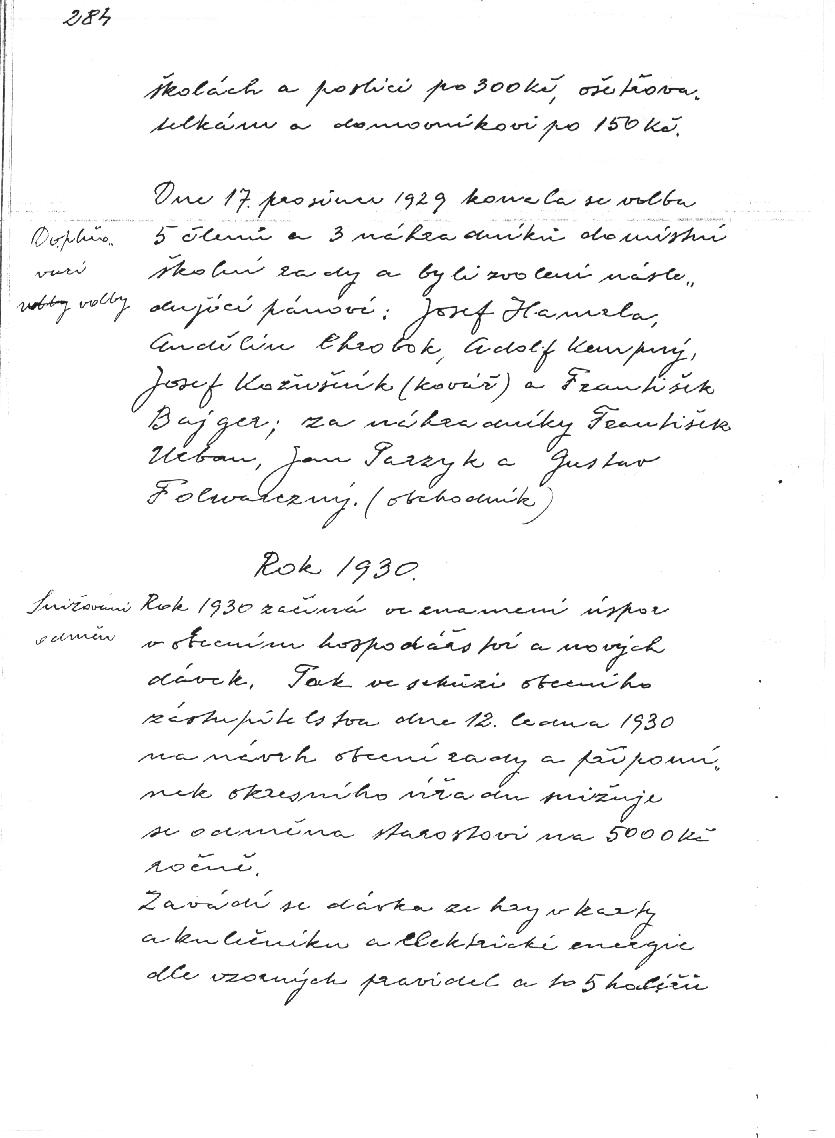 284
školách a poslici po 300 Kč, ošetřova„
telkám a domovníkovi po 150 Kč.
Dne 17. prosince 1929 konala se volba
Doplňo„
vací
volby
5 členů a 3 náhradníků do místní
školní rady a byli zvoleni násle„
dující pánové: Josef Hamrla,
Andělín Chrobok, Adolf Kempný,
Josef Kožušník (kovář) a František
Bajger; za náhradníky František
Urban, Jan Parzyk a Gustav
Folwarczný. (obchodník)
Rok 1930.
Snižování
odměn
Rok 1930 začíná ve znamení úspor
v obecním hospodářství a nových
dávek. Tak ve schůzi obecního
zástupitelstva dne 12. ledna 1930
na návrh obecní rady a připomí„
nek okresního úřadu snižuje
se odměna starostovi na 5000 Kč
ročně.
Zavádí se dávka ze hry v karty
a kulečníku a elektrické energie
dle vzorných pravidel a to 5 haléřů